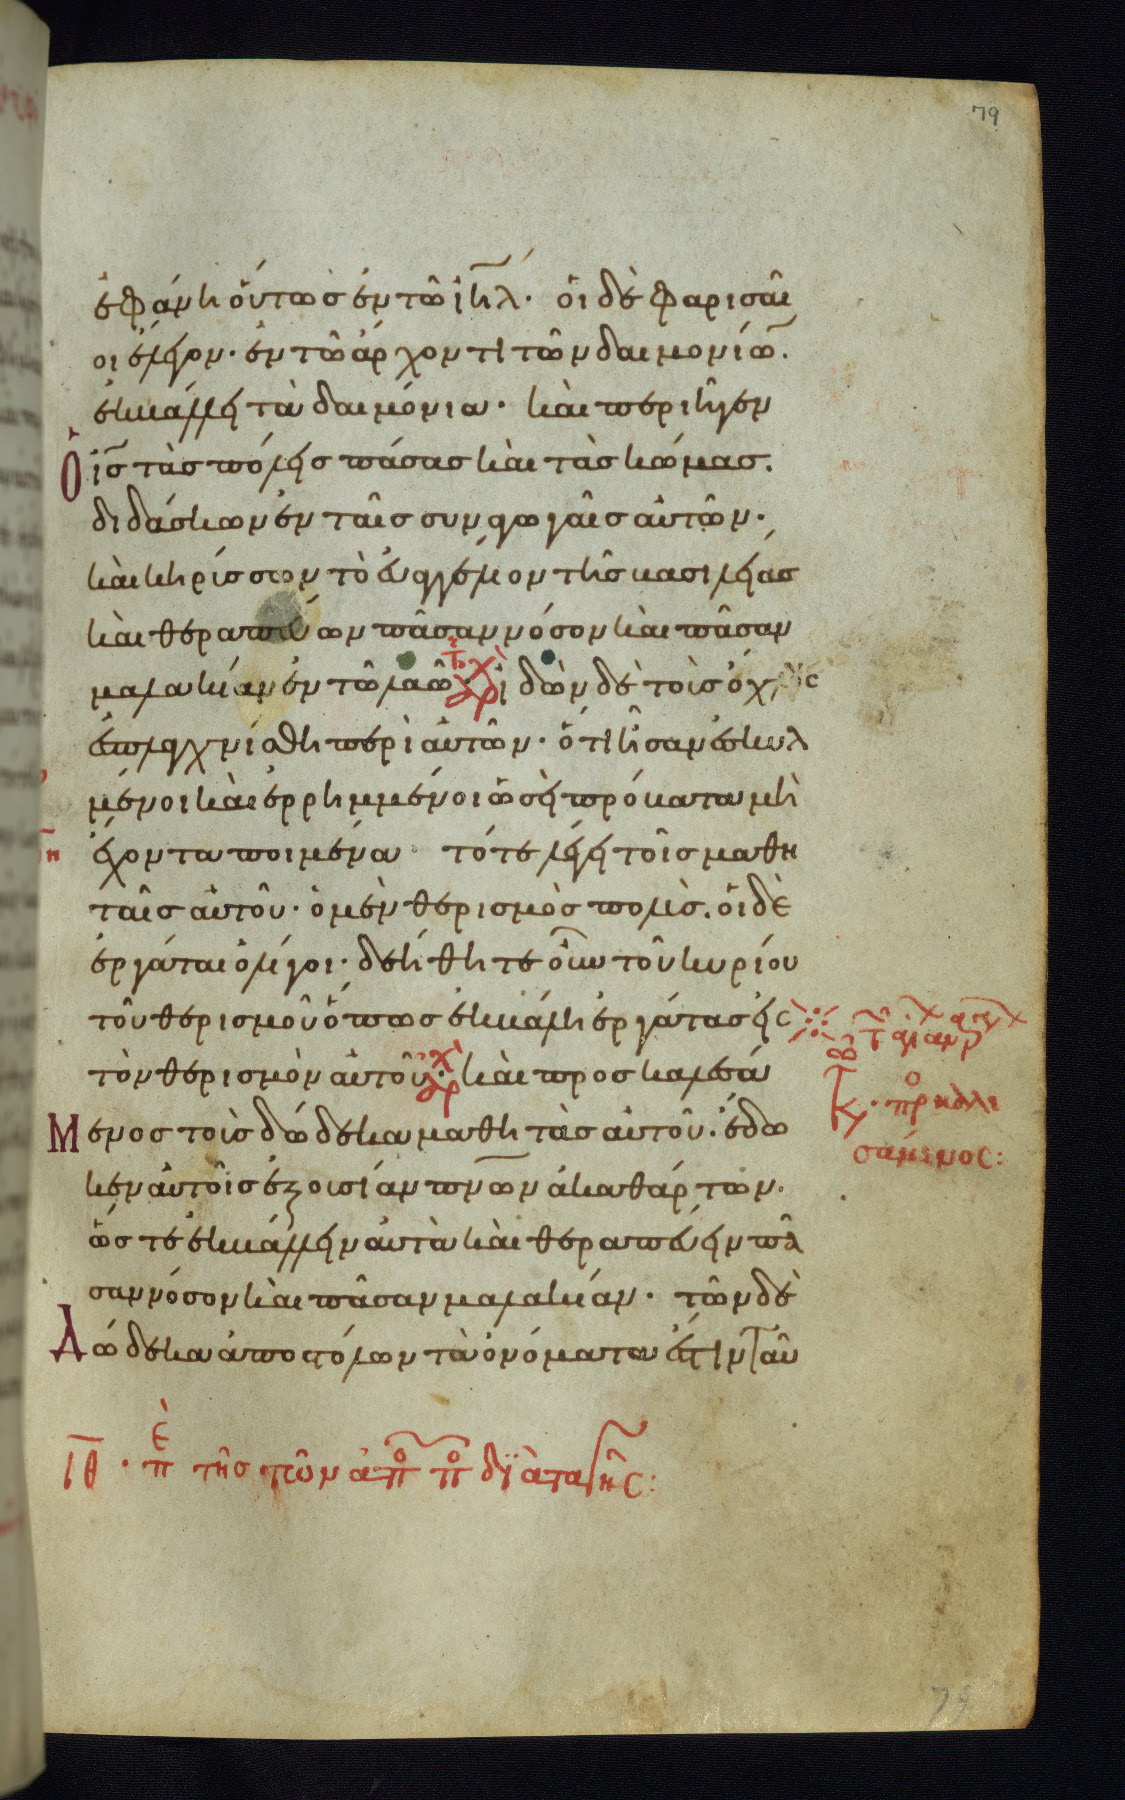 79
ἐφάνη οὕτως ἐν τῶ ἰηλ. οἱ δὲ φαρισαῖ
οι ἔλεγον. ἐν τῶ ἄρχοντι τῶν δαιμονίω.
ἐκβάλλει τὰ δαιμόνια. καὶ περιῆγεν
Ὁ ις τὰς πόλεις πάσας καὶ τὰς κώμας.
διδάσκων ἐν ταῖς συναγωγαῖς αὐτῶν.
καὶ κηρίσσων τὸ εὐαγγέλιον τῆς βασιλείας
καὶ θεραπεύων πᾶσαν νόσον καὶ πᾶσαν
μαλακίαν ἐν τῶ λαῶ. ἰδὼν δὲ τοὺς ὄχλους
ἐσπλαγχνίσθη περὶ αὐτῶν. ὅτι ἦσαν ἐσκυλ
μένοι καὶ ἐρρημμένοι ὡσεὶ πρόβατα μὴ
ἔχοντα ποιμένα τότε λέγει τοῖς μαθη
ταῖς αὐτοῦ. ὁ μὲν θερισμὸς πολὺς. οἱ δὲ
ἐργάται ὀλίγοι. δεήθητε οὖν τοῦ κυρίου
τοῦ θερισμοῦ ὅπως ἐκβάλη ἐργάτας εἰς
τὸν θερισμὸν αὐτοῦ. καὶ προσκαλεσά
Μενος τοὺς δώδεκα μαθητὰς αὐτοῦ. ἔδω
κεν αὐτοῖς ἐξουσίαν πνων ἀκαθάρτων.
ὥστε ἐκβάλλειν αὐτὰ καὶ θεραπεύειν πᾶ
σαν νόσον καὶ πᾶσαν μαλακίαν. τῶν δὲ
Δώδεκα ἀποστόλων τὰ ὀνόματα ἐστιν ταῦ
προκαλε
σάμενος:
ΙΘ. πε τῆς τῶν ἀπο πο διαταγῆς: